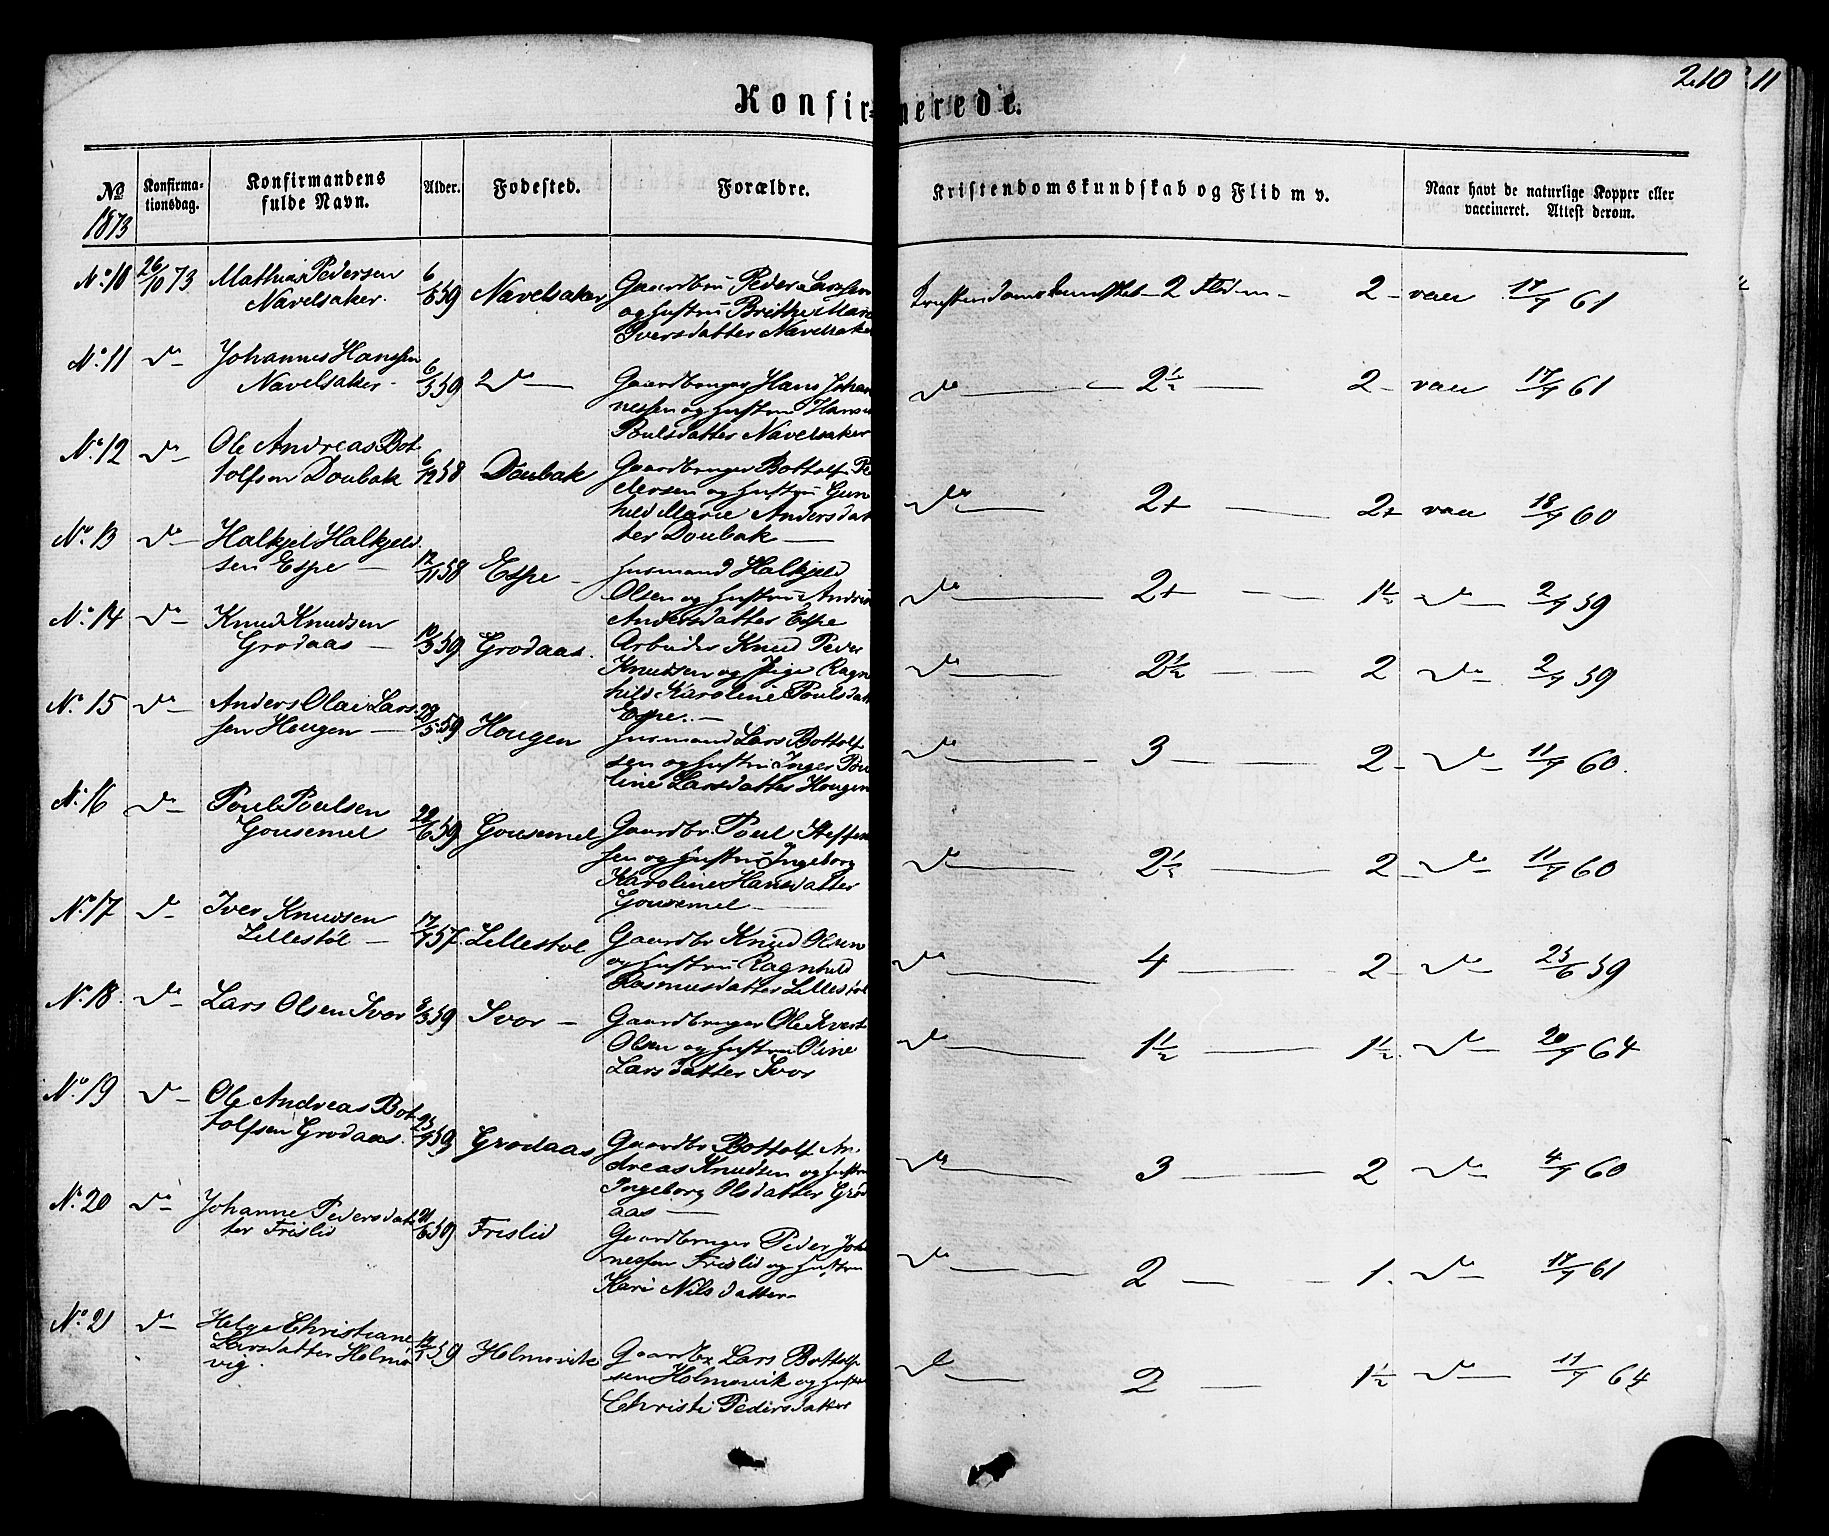 Konfirmerede.
210 211
No
1873
Konfirma-
tionsdag.
Konfirmandens
fulde Navn.
Alder.
Fødested.
Forældre.
Kristendomskundskab og Flid m v.
Naar havt de naturlige Kopper eller
vaccineret. Attest derom.
No 10 26/10 73 Mathias Pedersen
Navelsaker.
59 Navelsaker
Gaardbr: Peder Larssen
og hustru Brithe Marie
Iversdatter Navelsaker
Kristendomskundskab 2 Flid m 2 vacc 17/9 61
No 11 do Johannes Hanssen
Navelsaker
6/3 59 do
Gaardbruger Hans Johan
nessen og hustru
Poulsdatter Navelsaker
do 2½ 2 vacc 17/9 61
No 12 do Ole Andreas Bot
tolfsen Doubak
6/12 58 Doubak
Gaardbruger Bottolf Pe
dersen og hustru Gun
hild Marie Andersdat
ter Doubak
do 2+ 2+ vacc 18/9 60
No 13 do Halkjel Halkjeld
sen Espe
12/11 58 Espe
Husmand Halkjeld
Olsen og hustru
Andersdatter Espe
do 2+ 1½ do 2/9 59
No 14 do Knud Knudsen
Grodaas
59 Grodaas.
Arbeider Knud Peder
Knudsen og Pige Ragn
hild Karoline Poulsdat
Espe.
do 2½ 2 do 2/9 59
No 15 do Anders Olai Lars
sen Hougen
28/5 59 Hougen
Husmand Lars Bottolf
sen og hustru Inger Pou
line Larsdatter Hougen
do 3 2 do 11/9 60.
No 16 do Poul Poulsen
Gousemel
22/6 59 Gousemel
Gaardbr. Poul Steffen
sen og hustru Ingeborg
Karoline Hansdatter
Gousemel
do 2½ 2 do 11/9 60
No 17 do Iver Knudsen
Lillestøl
17/9 57. Lillestol
Gaardbr Knud Olsen
og hustru Ragnhild
Rasmusdatter Lillestøl
do 4 2 do 25/6 59
No 18. do Lars Olsen Svor
8/3 59 Svor
Gaardbruger Ole Sivert
Olsen og hustru Oline
Larsdatter Svor
do 1½ 1½. do 20/9 64
No 19 do Ole Andreas Bot
tolfsen Grodaas.
59 Grodaas
Gaardbr Bottolf An
dreas Knudsen og hustru
Ingeborg Olsdatter Grod
aas
do 3 2 do 4/9 60
No 20 do Johanne Pedersdat
ter Frislid
59 Frislid
Gaardbruger Peder Joha
nessen Frislid og hustru
Kari Nilsdatter
do 2 1. do 17/9 61
No 21 do Helge Christiane
Larsdatter Holmø
vig.
59 Holmøvik
Gaardbr Lars Bottolf
sen Holmøvik og hustru
Christi Pedersdatter
do 2 1½ do 11/9 64